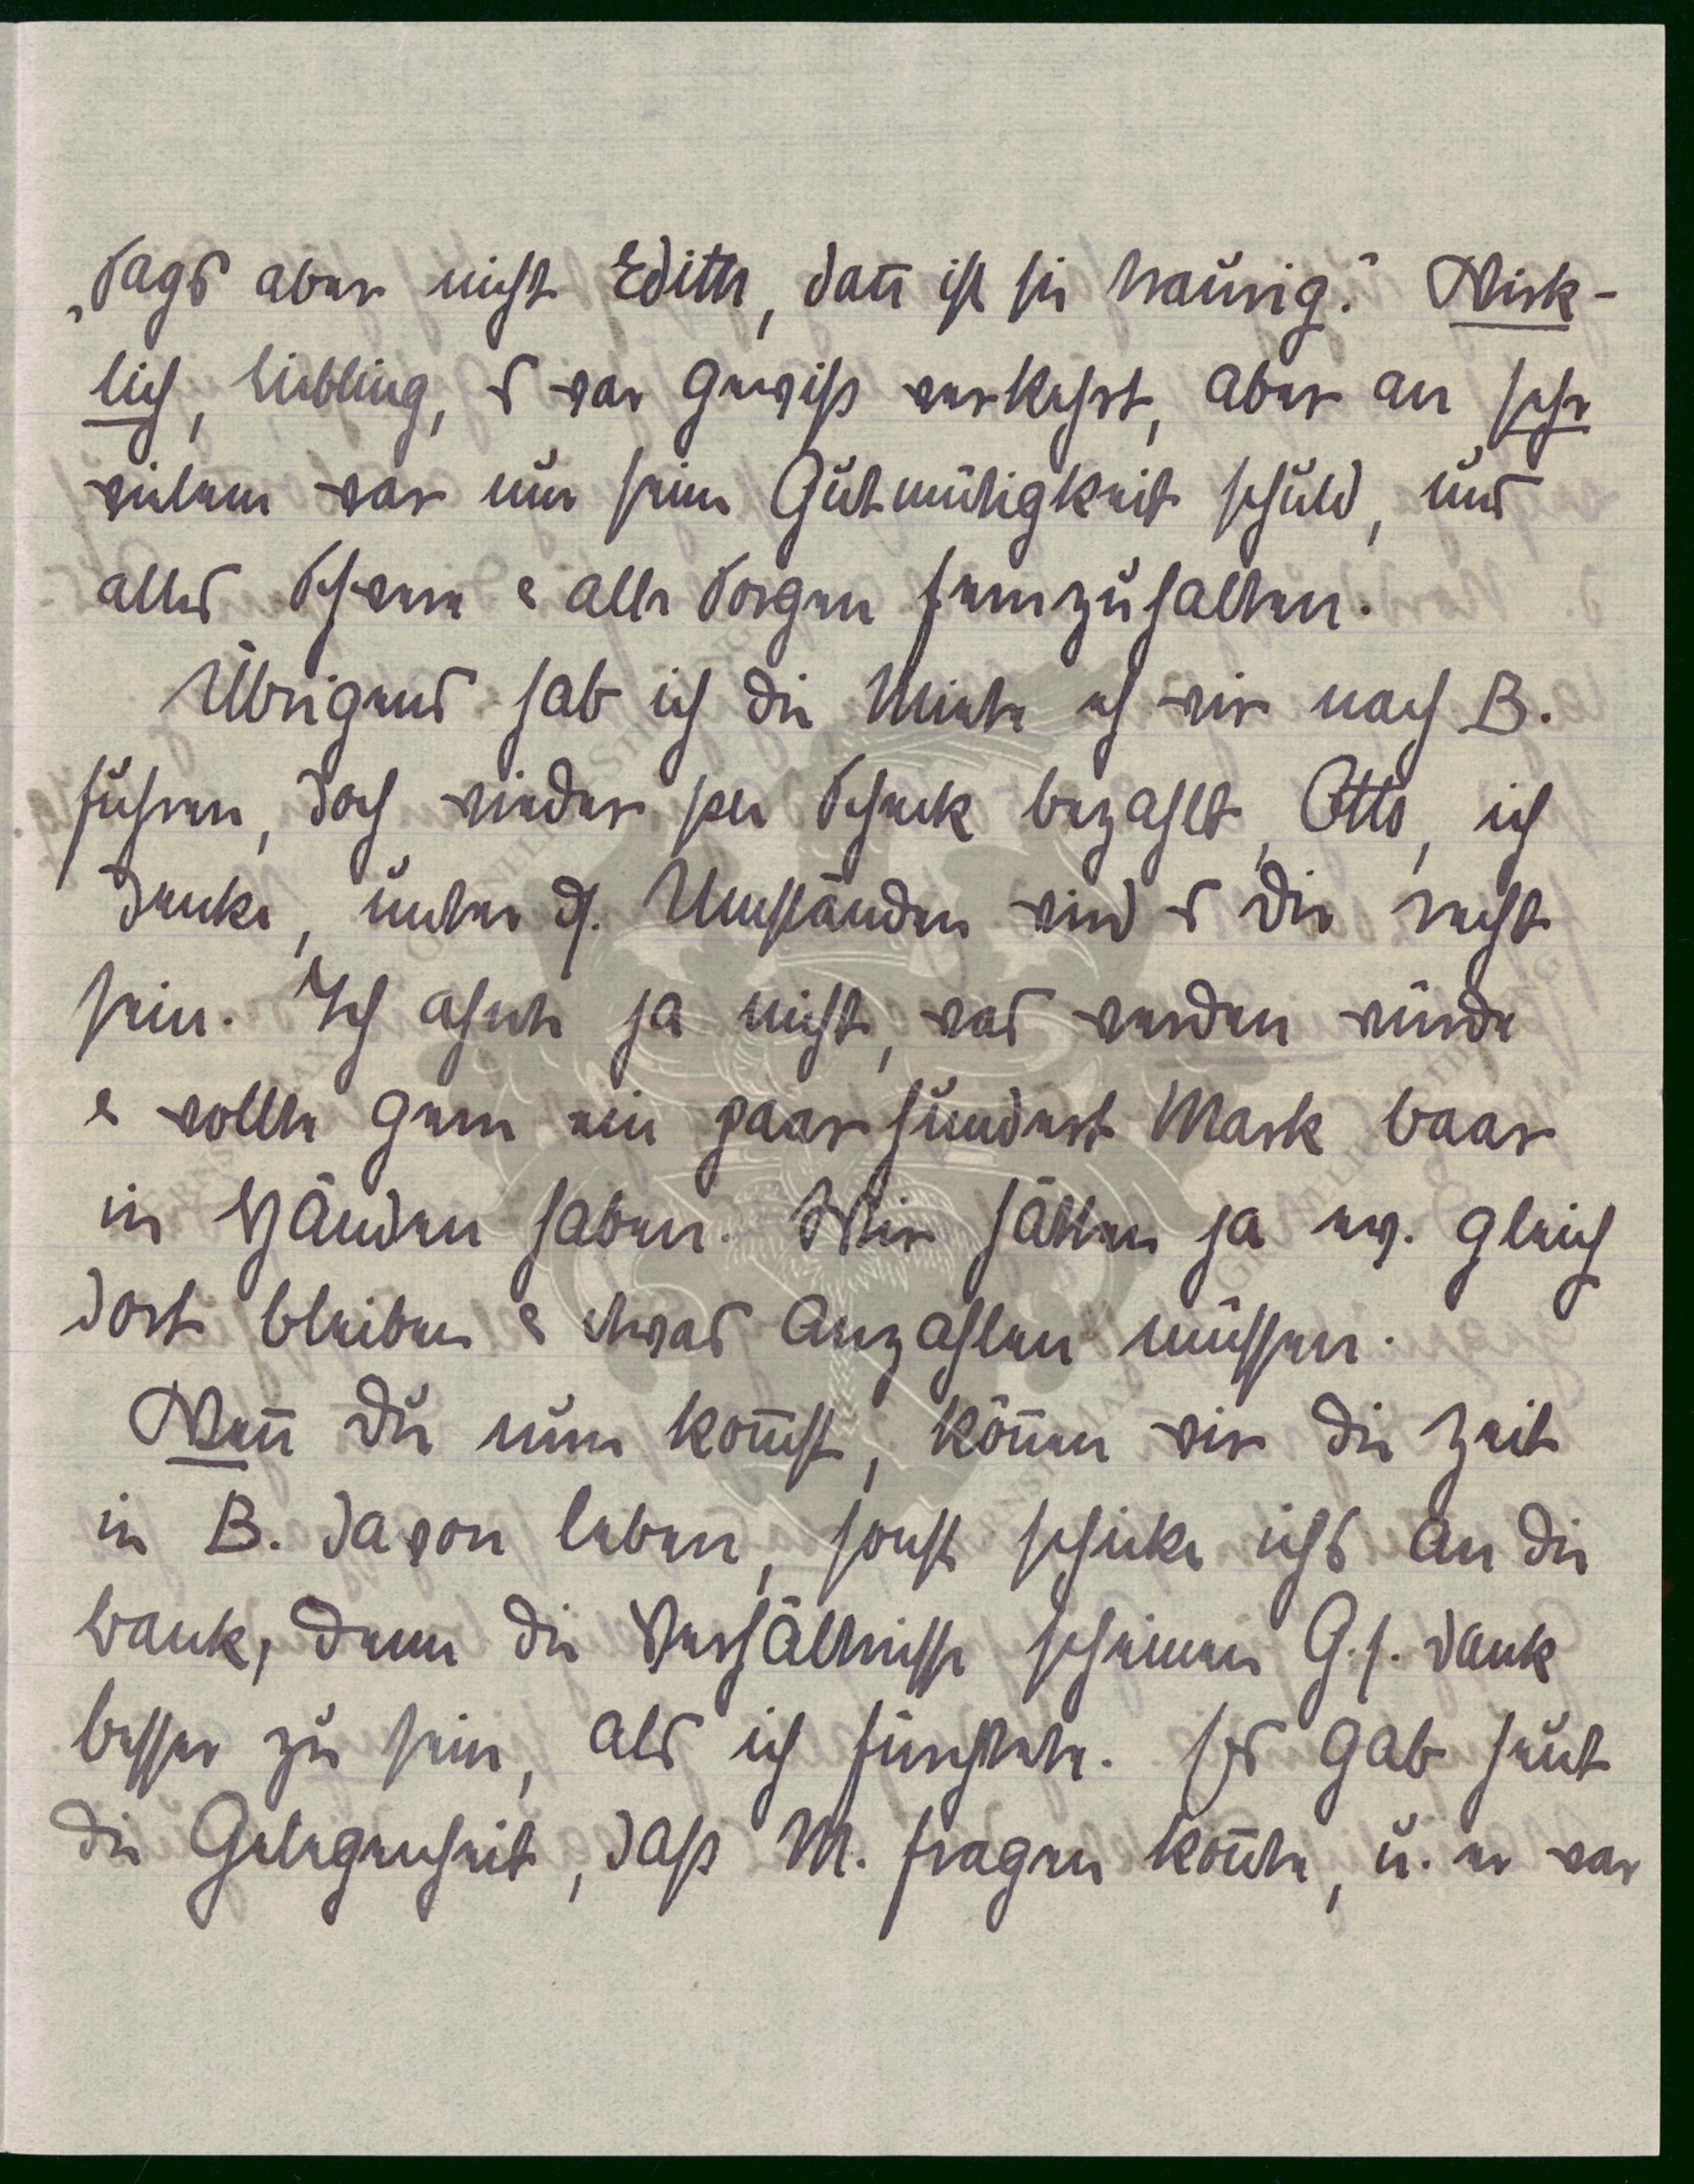 „Sags aber nicht Edith, dan̄ ist sie traurig.“ Wirk-
lich, Liebling, es war gewiß verkehrt, aber an sehr
vielem war nur seine Gutmütigkeit schuld, uns
alles Schwere & alle Sorgen fernzuhalten.
Übrigens hab ich die Miete eh wir nach B.
fuhren, doch wieder per Scheck bezahlt, Otto, ich
denke, unter ds. Umständen wird es Dir recht
sein. Ich ahnte ja nicht, was werden würde
& wollte gern ein paar hundert Mark baar
in Händen haben. Wir hätten ja ev. gleich
dort bleiben & etwas anzahlen müssen.
Wen̄ Du nun kom̄st, kön̄en wir die Zeit
in B. davon leben, sonst schicke ichs an die
bank, denn die Verhältnisse scheinen G. s. dank
besser zu sein, als ich fürchtete. Es gab heut
die Gelegenheit, daß M. fragen kon̄te, u. er war